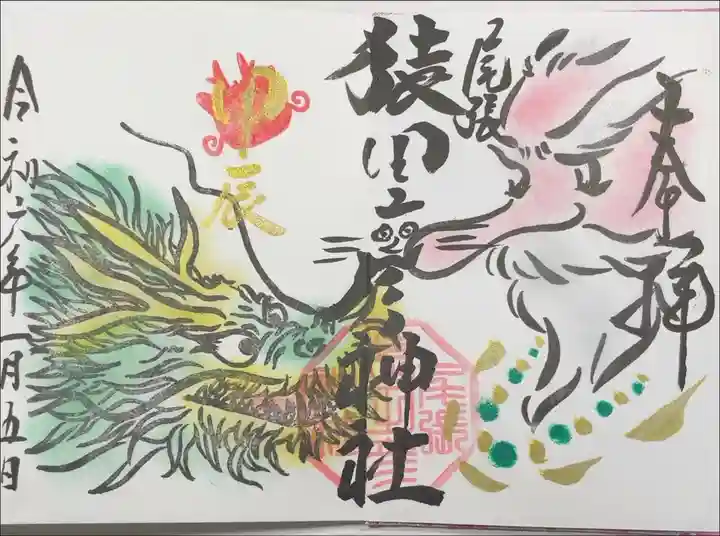 奉拝
尾張
猿田彦神社
甲辰
令和六年一月五日